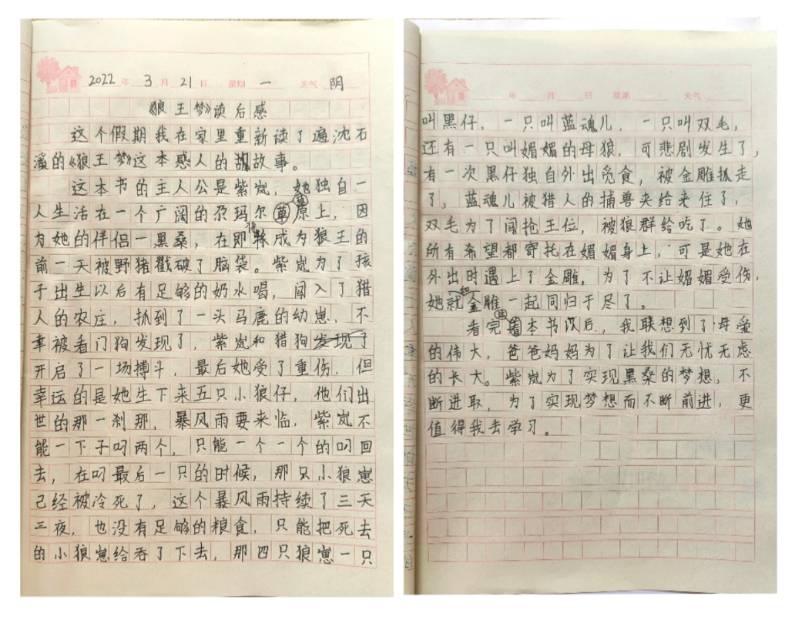 2022年 3月 21日 星期一 天气 阴
《狼王梦》读后感
这个假期我在家里重新读了遍沈石
溪的《狼王梦》这本感人的故事。
这本书的主人公是紫岚，她独自一
人生活在一个广阔的尕玛尔草原上，因
为她的伴侣一黑桑，在即将成为狼王的
前一天被野猪戳破了脑袋。紫岚为了孩
子出生以后有足够的奶水喝，闯入了猎
人的农庄，抓到了一头马鹿的幼崽，不
幸被看门狗发现了，紫岚和猎狗
开启了一场搏斗，最后她受了重伤，但
幸运的是她生下来五只小狼仔，他们出
世的那一刹那，暴风雨要来临，紫岚不
能一下子叼两个，只能一个一个的叼回
去，在叼最后一只的时候，那只小狼崽
已经被冷死了，这个暴风雨持续了三天
三夜，也没有足够的粮食，只能把死去
的小狼崽给吞了下去，那四只狼崽一只
年 月 日 星期 天气
叫黑仔，一只叫蓝魂儿，一只叫双毛，
还有一只叫媚媚的母狼，可悲剧发生了，
有一次黑仔独自外出觅食，被金雕抓走
了，蓝魂儿被猎人的捕兽夹给夹住了，
双毛为了闯抢王位，被狼群给吃了。她
所有希望都寄托在媚媚身上，可是她在
外出时遇上了金雕，为了不让媚媚受伤，
她就和金雕一起同归于尽了。
看完这本书以后，我联想到了母爱
的伟大，爸爸妈妈为了让我们无忧无虑
的长大。紫岚为了实现黑桑的梦想，不
断进取，为了实现梦想而不断前进，更
值得我去学习。